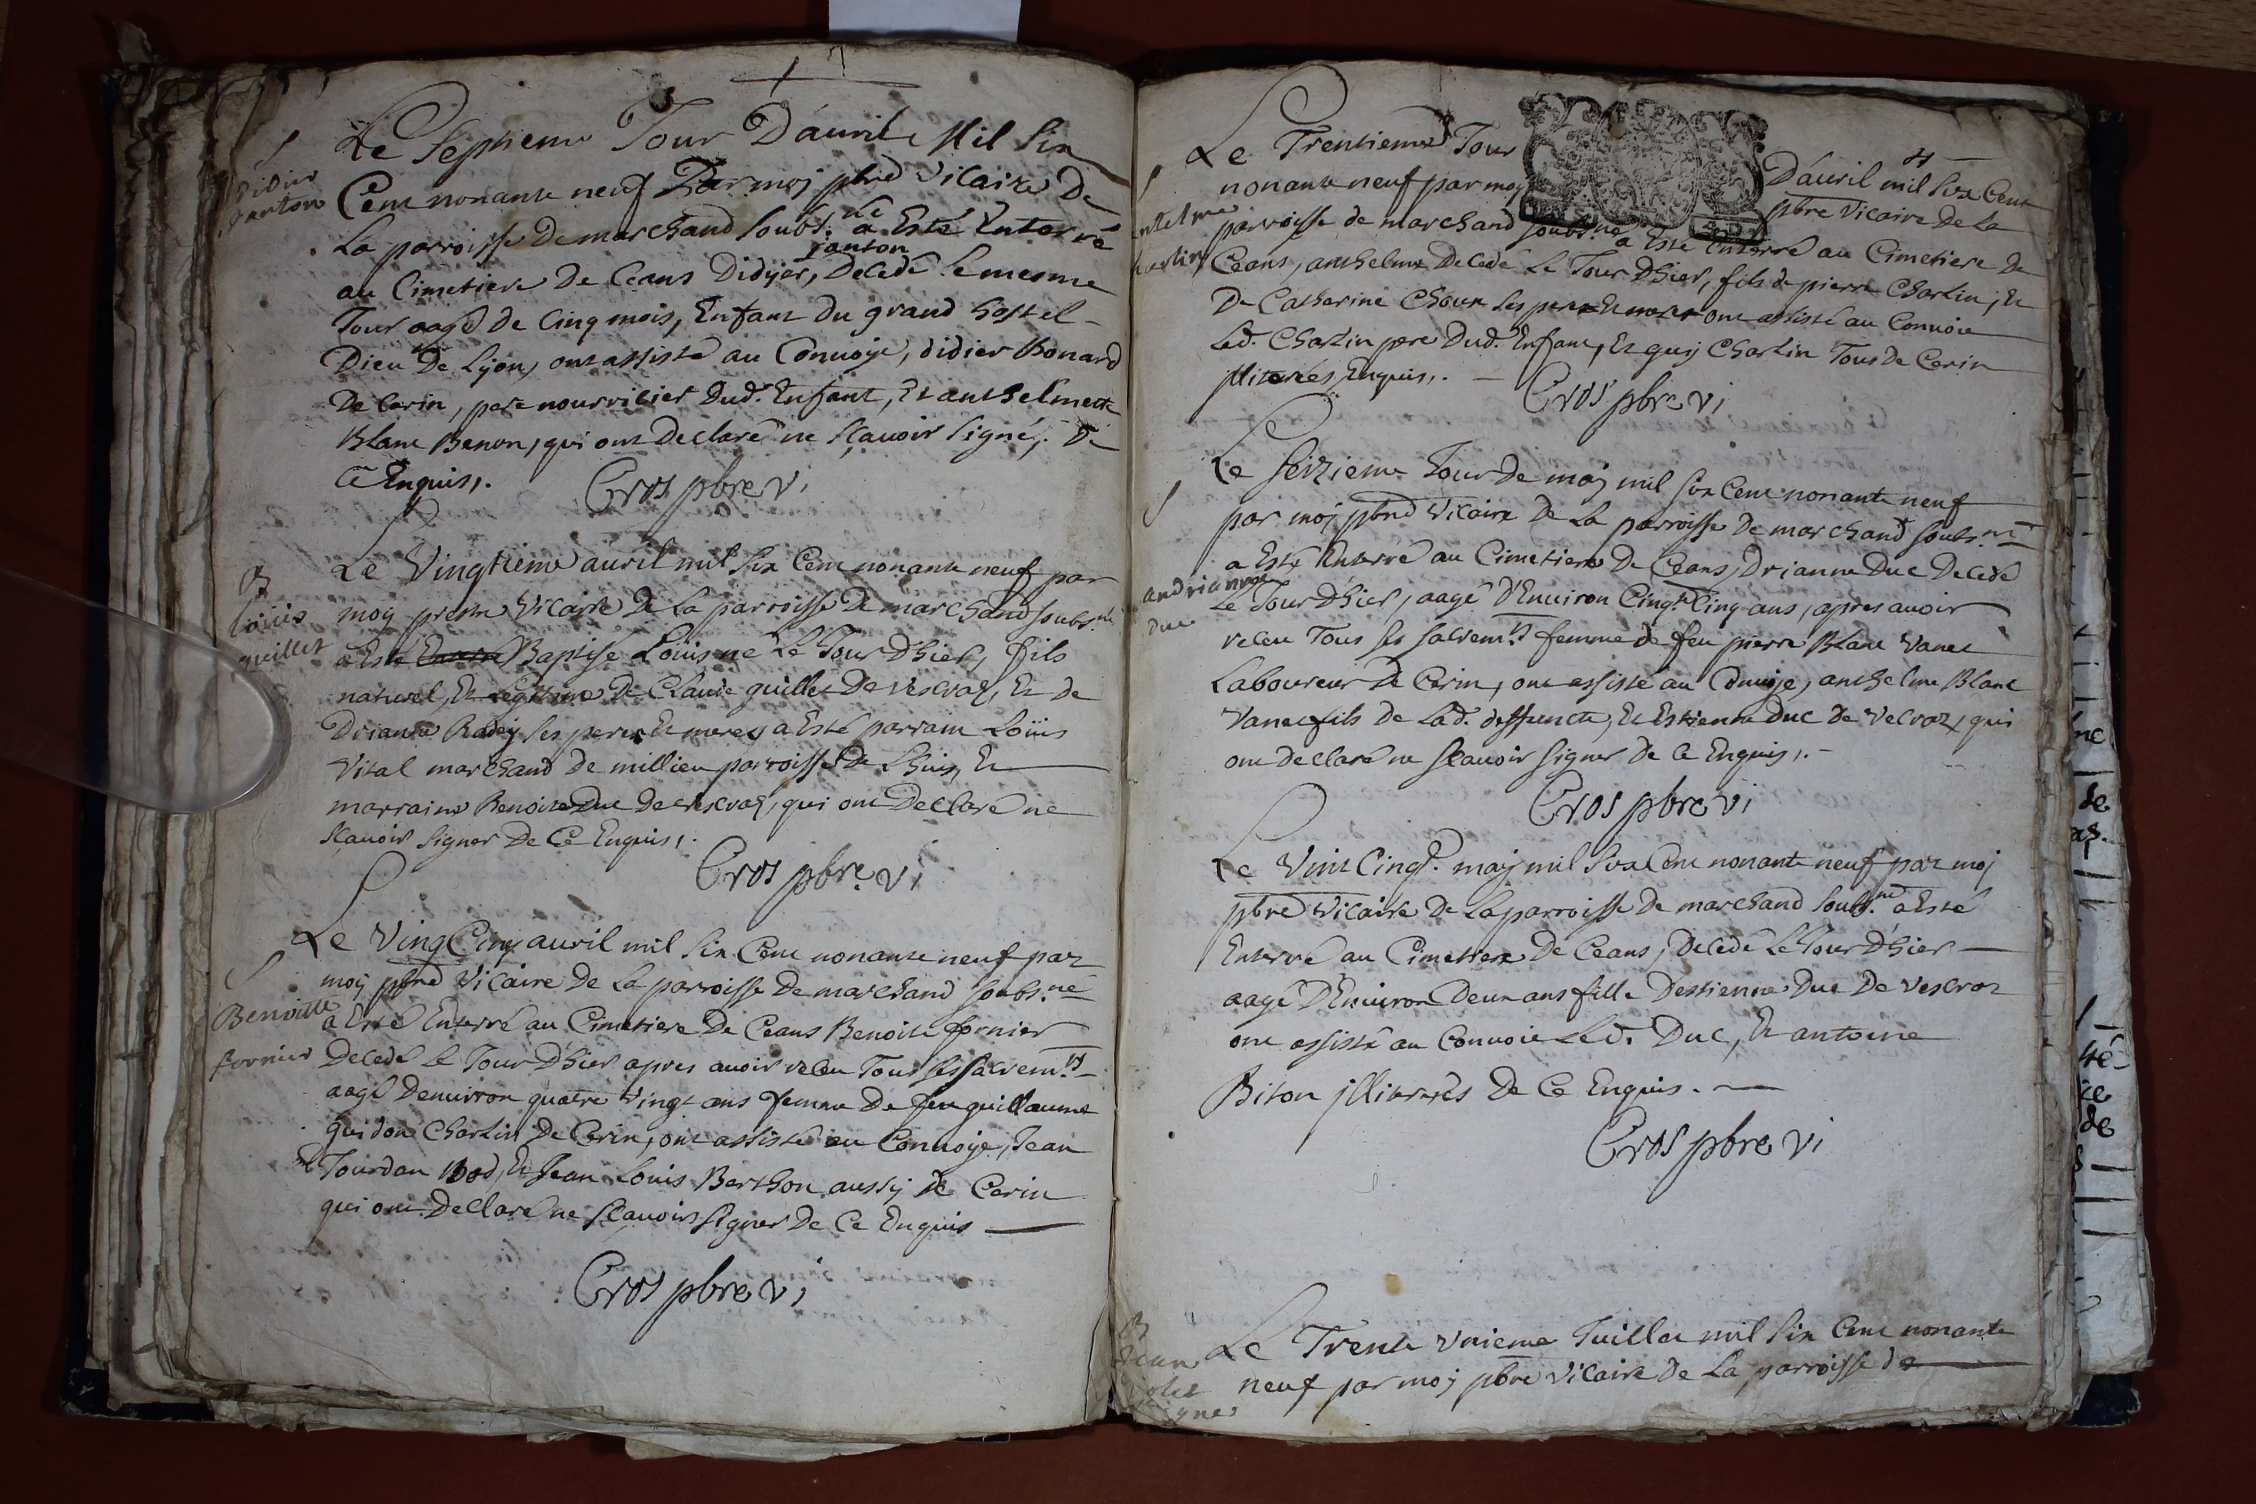 S
Didier
Janton
Le Septieme Jour D'auril Mil Six
Cent nonante neuf Par moj pbre Vicaire De
La parroisse De marchand soubs.né a Esté Enterré
Janton
au Cimetiere De Ceans Didyer, Decedé le mesme
Jour aagé de Cinq mois, Enfant du grand hostel-
Dieu De Lyon, ont assisté au Convoye, didier Bonard
De Cerin, pere nourricier dud. Enfant, Et anthelme
Blanc Benon, qui ont Declaré ne sçavoir signé, De
Ce Enquis,.
Cros pbre vi
B
Loüis
guillet
Le Vingtieme auril mil six Cent nonante neuf par
moy prestre Vicaire De La parroisse De marchand soubs.né
a Esté Baptisé Loüis né Le Jour D'hier, fils
naturel, Et Legitime De Claude guillet De Vescraz, Et de
Drianne ses peres Et meres a Esté parrain Loüis
Vital marchand de millieu parroisse De Lhuis, Et
marraine Benoite Duc de Vescraz, qui ont Declaré ne
sçavoir signer De Ce Enquis,.
Cros pbre. vi
S
Benoitte
fornier
Le Ving Cinq auril mil Six Cent nonante neuf par
moij pbre Vicaire De La parroisse De marchand soubs.né
a Esté Enterré au Cimetiere De Ceans Benoite fornier
Decedé le Jour D'hier apres avoir receu Tous ses sacrem.ts
aagé Denuiron quatre Vingt ans femme De feu guillaume
guidon Charlin De Cerin, ont assisté au Convoye, Jean
Jourdan Et Jean Louis Berthon aussy de Cerin
qui ont Declaré ne sçavoir signer De Ce Enquis
Cros pbre vi
4
Le Trentieme Jour D'auril mil Six Cent
nonante neuf par moy pbre Vicaire De La
parroisse de marchand soubs.né a Esté Enterré au Cimetiere De
Ceans, anthelme Decedé Le Jour D'hier, fils de pierre Charlin, Et
De Catherine ses pere Et mere ont assisté au Convoie
Led. Charlin pere Dud. Enfant, Et guy Charlin Tous De Cerin
jlliterés Enquis,.
Cros pbre vi
S
andrianne
Duc
Le Seizieme Jour De maj mil six Cent nonante neuf
par moj pbre Vicaire De La parroisse De marchand soubs.né
a Esté Enterré au Cimetiere De Ceans, Drianne Duc Decedé
Le Jour D'hier, aagé D'Enuiron Cinq.te Cinq ans, apres avoir
receu Tous ses sacrem.ts femme de feu pierre Blanc Vanet
Laboureur De Cerin, ont assisté au Convoye, anthelme Blanc
Vanet fils De Lad. deffuncte, Et Estienne Duc De Vescraz, qui
ont declaré ne sçavoir signer De Ce Enquis,.
Cros pbre vi
Le Vint Cinq.e maij mil Six Cent nonante neuf par moj
pbre Vicaire De La parroisse De marchand soubs.né a Esté
Enterré au Cimetiere De Ceans, Decedé Le Jour D'hier
aagé D'Enuiron Deux ans fille Destienne Duc De Vescraz
ont assisté au Convoie Led. Duc, Et antoine
Biton jlliterés De Ce Enquis.
Cros pbre vi
B
Jean
Le Trente Vnieme Juillet mil Six Cent nonante
neuf par moj pbre Vicaire De La parroisse de